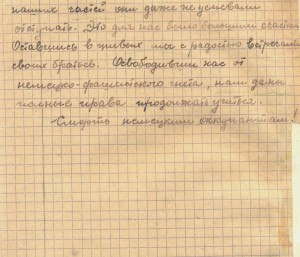 наших частей они даже не успевали
отступать. Это для нас было большим счастьем
Оставшись в живых мы с радостью встречали
своих братьев. Освободивши нас от
немецко-фашистского гнета, нам даны
полные права продолжать учиться.
Смерть немецким оккупантам!